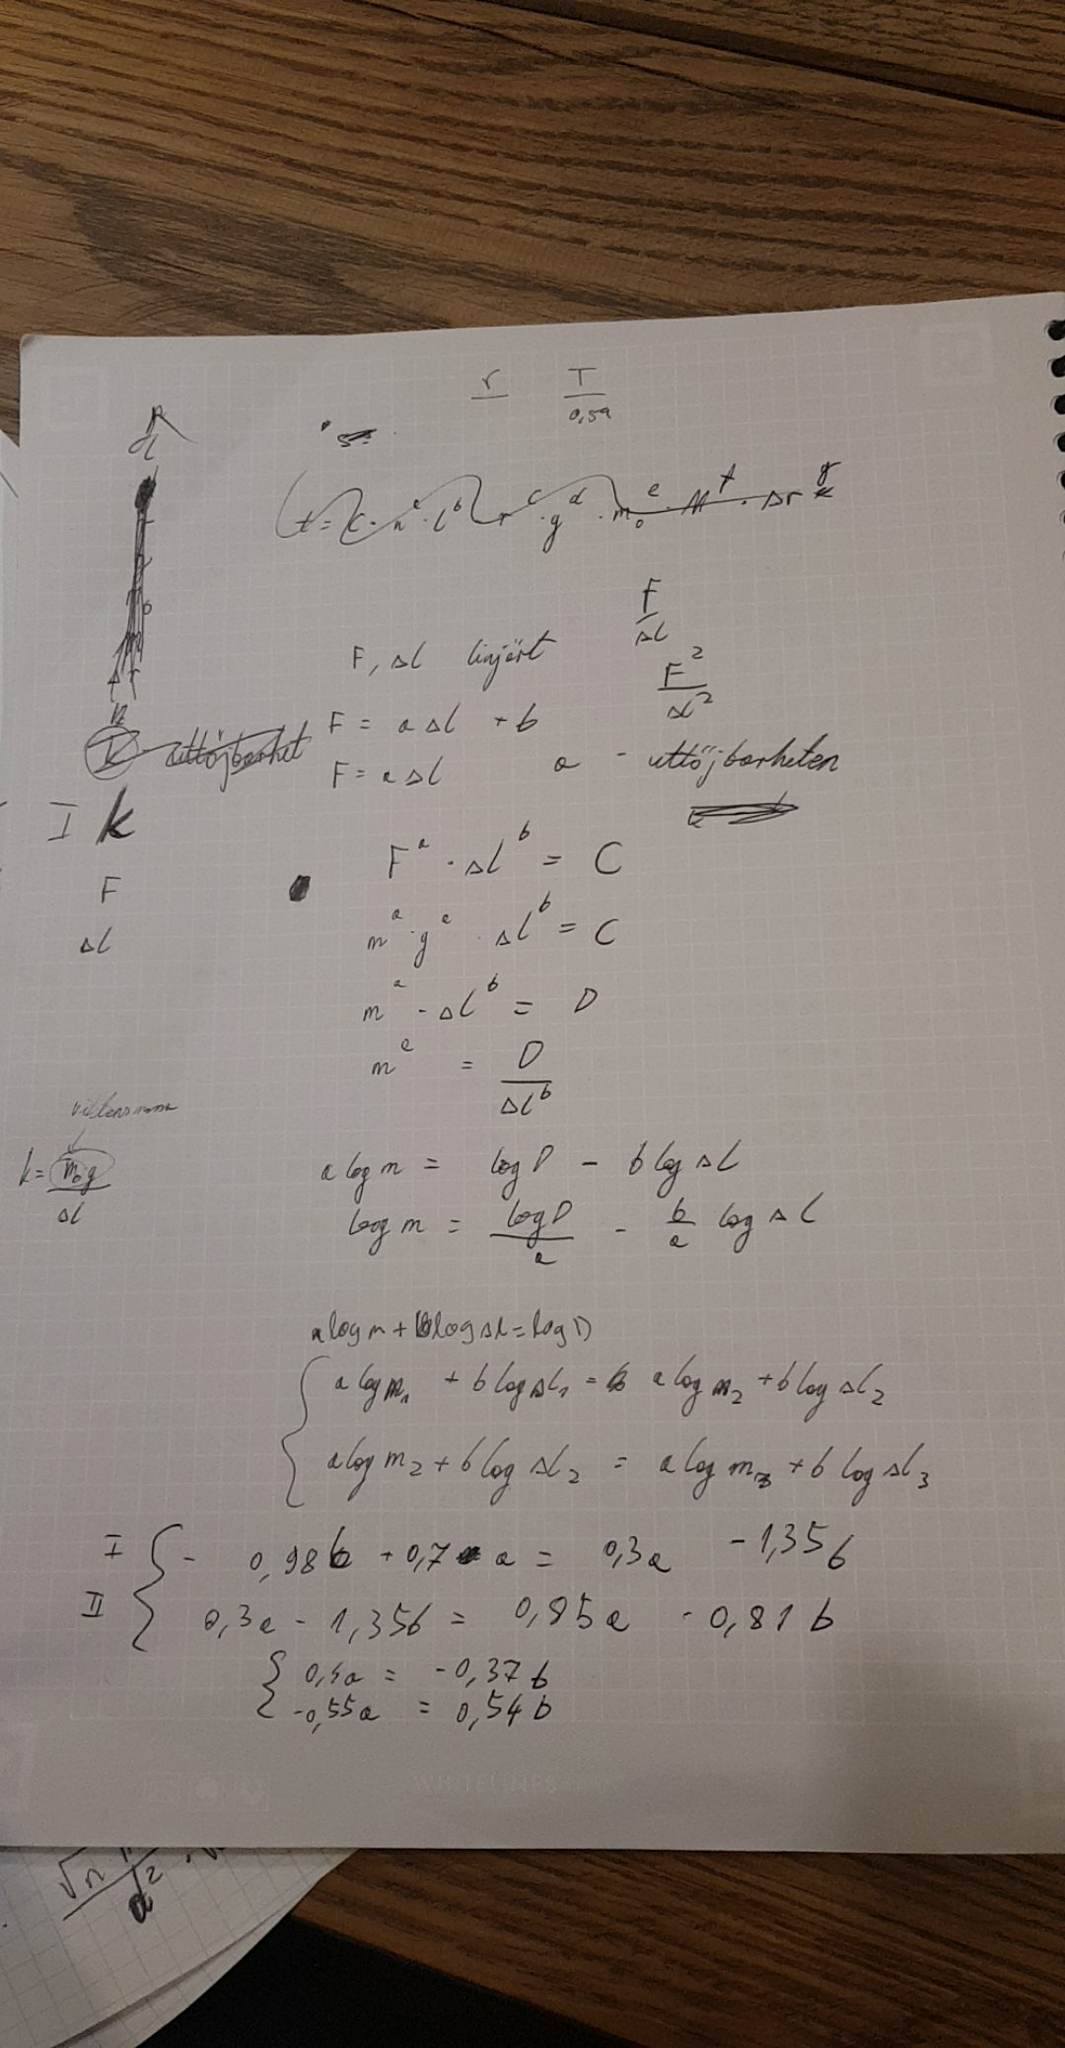 r T/0,5a
F/Δl
F, Δl linjärt
F²/Δl²
F = aΔl + b
k uttöjbarhet
F = aΔl a - uttöjbarheten
I k
Fᵃ · Δlᵇ = C
F
mᵃ · gᵃ · Δlᵇ = C
Δl
mᵃ · Δlᵇ = D
mᵃ = D/Δlᵇ
k = m₀g/Δl
a log m = log D - b log Δl
log m = log D/a - b/a log Δl
a log m + b log Δl = log D
a log m₁ + b log Δl₁ = a log m₂ + b log Δl₂
a log m₂ + b log Δl₂ = a log m₃ + b log Δl₃
I - 0,98b + 0,7a = 0,3a - 1,35b
II 0,3a - 1,35b = 0,85a - 0,81b
0,4a = -0,37b
-0,55a = 0,54b